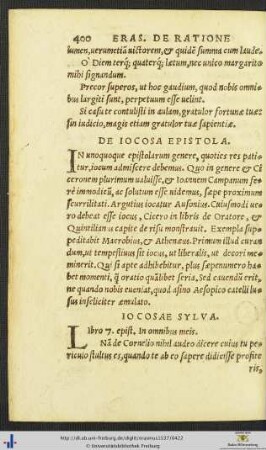 400 ERAS. DE RATIONE
iuuen, uerumetiã uictorem, & quidẽ summa cum laude.
O Diem terq́; quaterq́; lætum, nec unico margarito
mihi signandum.
Precor superos, ut hoc gaudium, quod nobis omni-
bus largiti sunt, perpetuum esse uelint.
Si casu te contulisti in aulam, gratulor fortunæ tuæ:
sin iudicio, magis etiam gratulor tuæ sapientiæ.
DE IOCOSA EPISTOLA.
IN unoquoque epistolarum genere, quoties res pati-
tur, iocum admiscere debemus. Quo in genere & Ci
ceronem plurimum ualuisse, & Ioannem Campanum fe-
rè immodicũ, ac solutum esse uidemus, sæpe proximum
scurrilitati. Argutius iocatur Ausonius. Cuiusmodi ue-
ro debeat esse iocus, Cicero in libris de Oratore, &
Quintilianus capite de risu monstrauit. Exempla sup-
peditabit Macrobius, & Athenæus. Primum illud curan-
dum, ut tempestiuus sit iocus, ut liberalis, ut decori me-
minerit. Qui si apte adhibebitur, plus sæpenumero ha-
bet momenti, q̃ oratio quælibet seria. Sed cauendũ erit,
ne quando nobis eueniat, quod asino Aesopico catelli lu-
sus infeliciter æmulato.
IOCOSAE SYLVA.
LIbro 7. epist. In omnibus meis.
Nã de Cornelio nihil audro dicere cuius tu pe-
riculo stultus es, quando te ab eo sapere didicisse profite
ris,